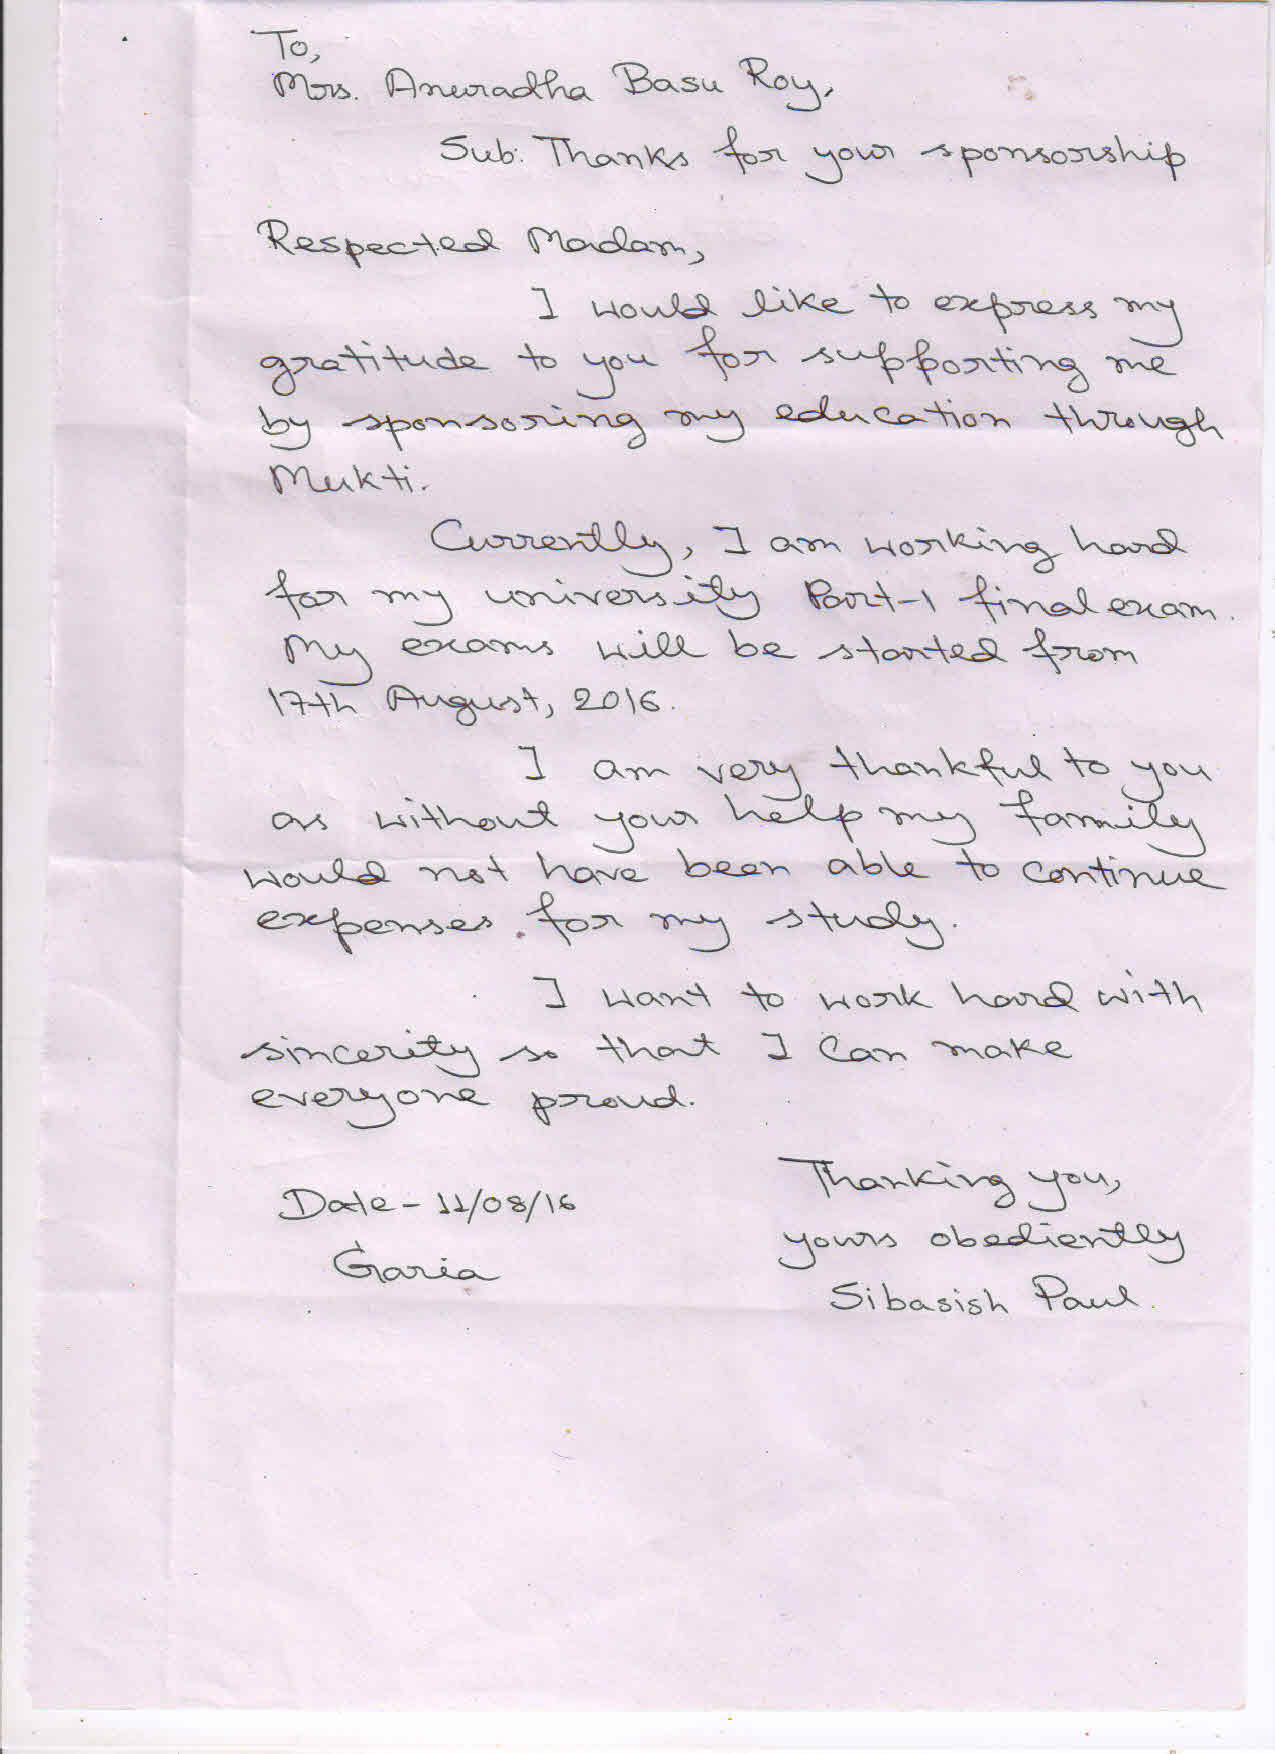 To,
Mrs. Anuradha Basu Roy,
Sub: Thanks for your sponsorship
Respected Madam,
I would like to express my
gratitude to you for supporting me
by sponsoring my education through
Mukti.
Currently, I am working hard
for my university Part-1 final exam.
My exams will be started from
17th August, 2016.
I am very thankful to you
as without your help my family
would not have been able to continue
expenses for my study.
I want to work hard with
sincerity so that I can make
everyone proud.
Thanking you,
Date - 11/08/16
yours obediently
Garia
Sibasish Paul.